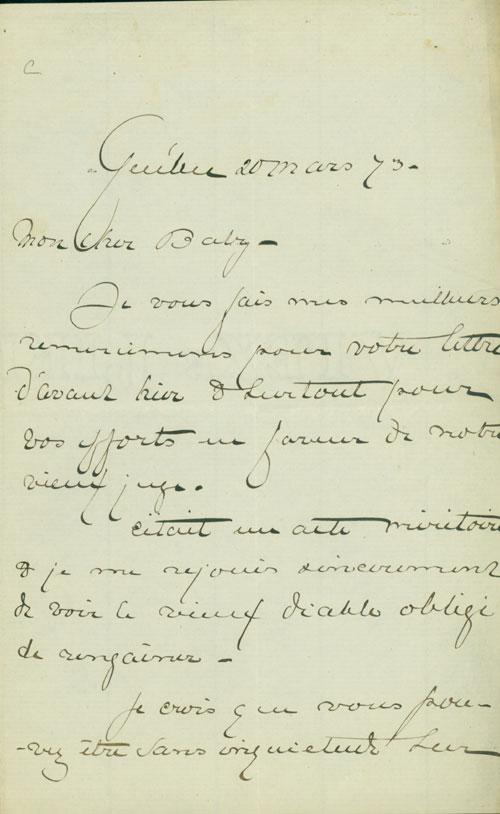 C
Québec 20 Mars 73 -
Mon cher Baby -
Je vous fais mes meilleurs
remerciemens pour votre lettre
d'avant hier & surtout pour
vos efforts en faveur de notre
vieux juge.
C'était un acte méritoire
& je me rejouis sincerement
de voir le vieux diable obligé
de rengainer -
Je crois que vous pou-
-vez être sans inquietude sur